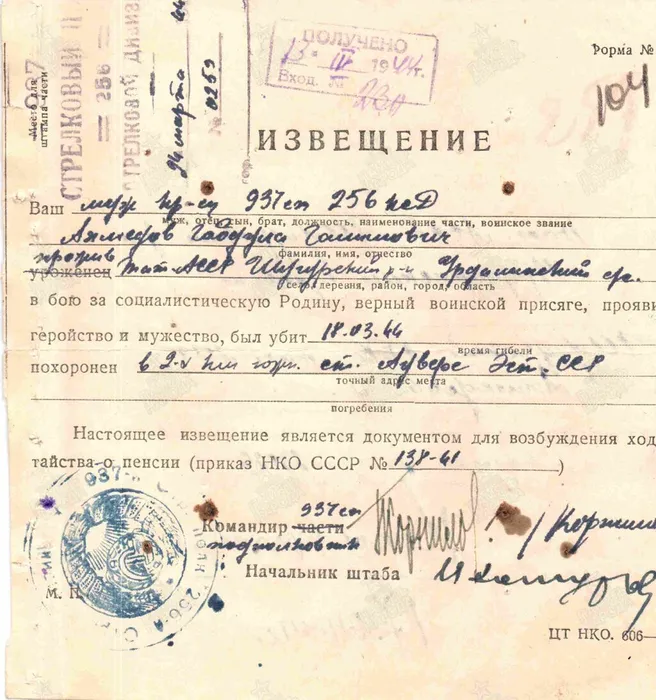 ПОЛУЧЕНО
13 III 1944 г.
Вход. № 230
Форма №
104
Место для
штампа части
СТРЕЛКОВЫЙ П
256
СТРЕЛКОВОЙ ДИВИЗ
24 марта 44
№ 0269
ИЗВЕЩЕНИЕ
Ваш муж кр-ец 937 сп 256 нсд
муж, отец, сын, брат, должность, наименование части, воинское звание
Ахмедов Габдула Галимович
фамилия, имя, отчество
прожив
уроженец Тат. АССР Шугурский р-н
село, деревня, район, город, область
в бою за социалистическую Родину, верный воинской присяге, прояви
геройство и мужество, был убит 18.03.44
время гибели
похоронен в 2-х км ст. Аувере Эст. ССР
точный адрес места
погребения
Настоящее извещение является документом для возбуждения ход
тайства о пенсии (приказ НКО СССР № 138-41 )
937 сп
Командир части
подполковник
Начальник штаба
М. П.
937
256
ЦТ НКО. 606—